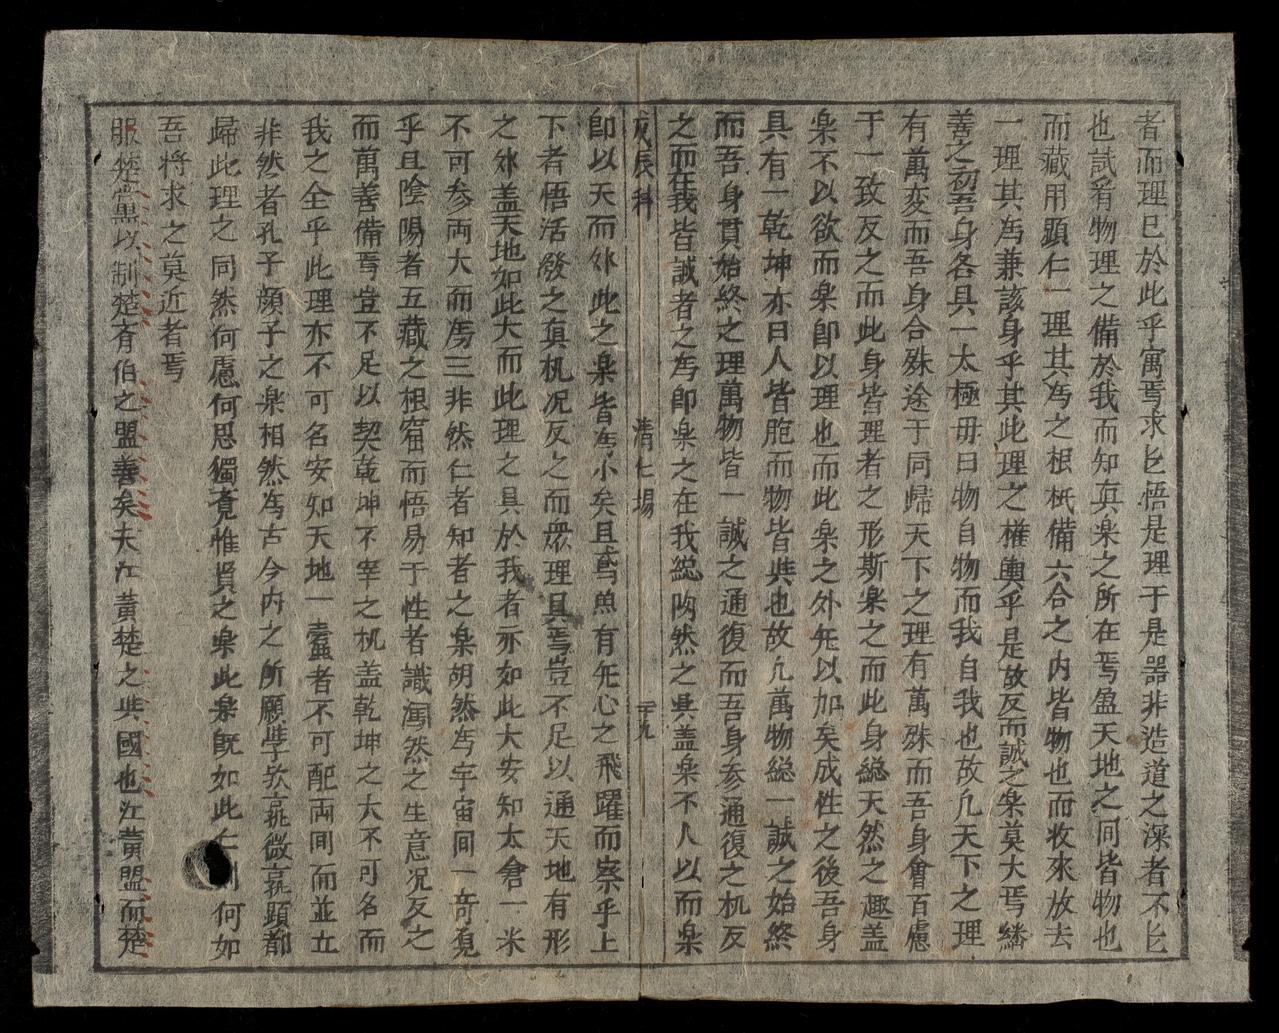 者而理已於此乎寓焉求匕悟是理于是器非造道之深者不匕
也試看物理之備於我而知真楽之所在焉盈天地之间皆物也
而藏用顕仁一理其為之根柢備六合之内皆物也而收來放去
一理其為兼該身乎其此理之權輿乎是故反而誠之楽莫大焉繙
善之初吾身各具一太極毋曰物自物而我自我也故凡天下之理
有萬变而吾身合殊途于同歸天下之理有萬殊而吾身會百慮
于一致反之而此身皆理者之形斯楽之而此身総天然之趣盖
楽不以欲而楽即以理也而此楽之外旡以加矣成性之後吾身
具有一乾坤亦曰人皆胞而物皆與也故凡萬物総一誠之始終
而吾身貫始終之理萬物皆一誠之通復而吾身参通復之机反
之而在我皆誠者之為即楽之在我総陶然之具盖楽不人以而楽
戊辰科 清仁場 二十九
即以天而外此之楽皆為小矣且鸢魚有旡心之飛躍而察乎上
下者悟活發之真机况反之而眾理具焉豈不足以通天地有形
之外盖天地如此大而此理之具於我者亦如此大安知太倉一米
不可参両大而為三非然仁者知者之楽胡然為宇宙间一竒覓
乎且陰陽者五藏之根窟而悟易于性者識渴然之生意况反之
而萬善備焉豈不足以契乾坤不宰之机盖乾坤之大不可名而
我之全乎此理亦不可名安知天地一蠹者不可配両间而並立
非然者孔子顔子之楽相然為古今内之所願學欤哀微哀顕都
歸此理之同然何慮何思獨覓惟真之楽此楽既如此仁則何如
吾将求之莫近者焉
服楚党以制楚斉伯之盟善矣夫江黄楚之與國也江黄盟而楚